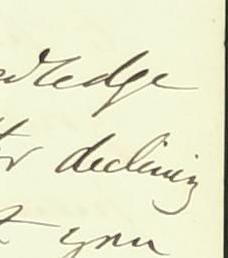 wledge
for declining
t you